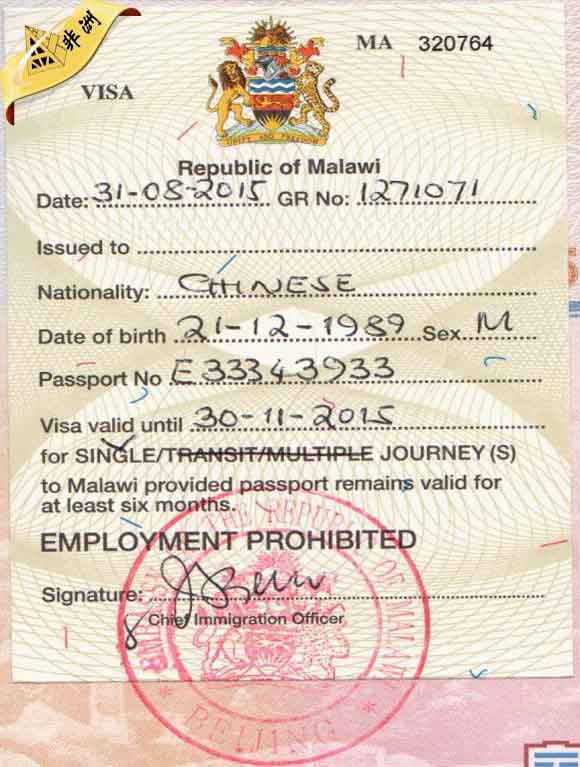 非洲
MA 320764
VISA
UNITY AND FREEDOM
Republic of Malawi
Date: 31-08-2015 GR No: 1271071
Issued to
Nationality: CHINESE
Date of birth 21-12-1989 Sex M
Passport No E33343933
Visa valid until 30-11-2015
for SINGLE/TRANSIT/MULTIPLE JOURNEY (S)
to Malawi provided passport remains valid for
at least six months.
EMPLOYMENT PROHIBITED
Signature:
Chief Immigration Officer
EMBASSY OF THE REPUBLIC OF MALAWI
* BEIJING *